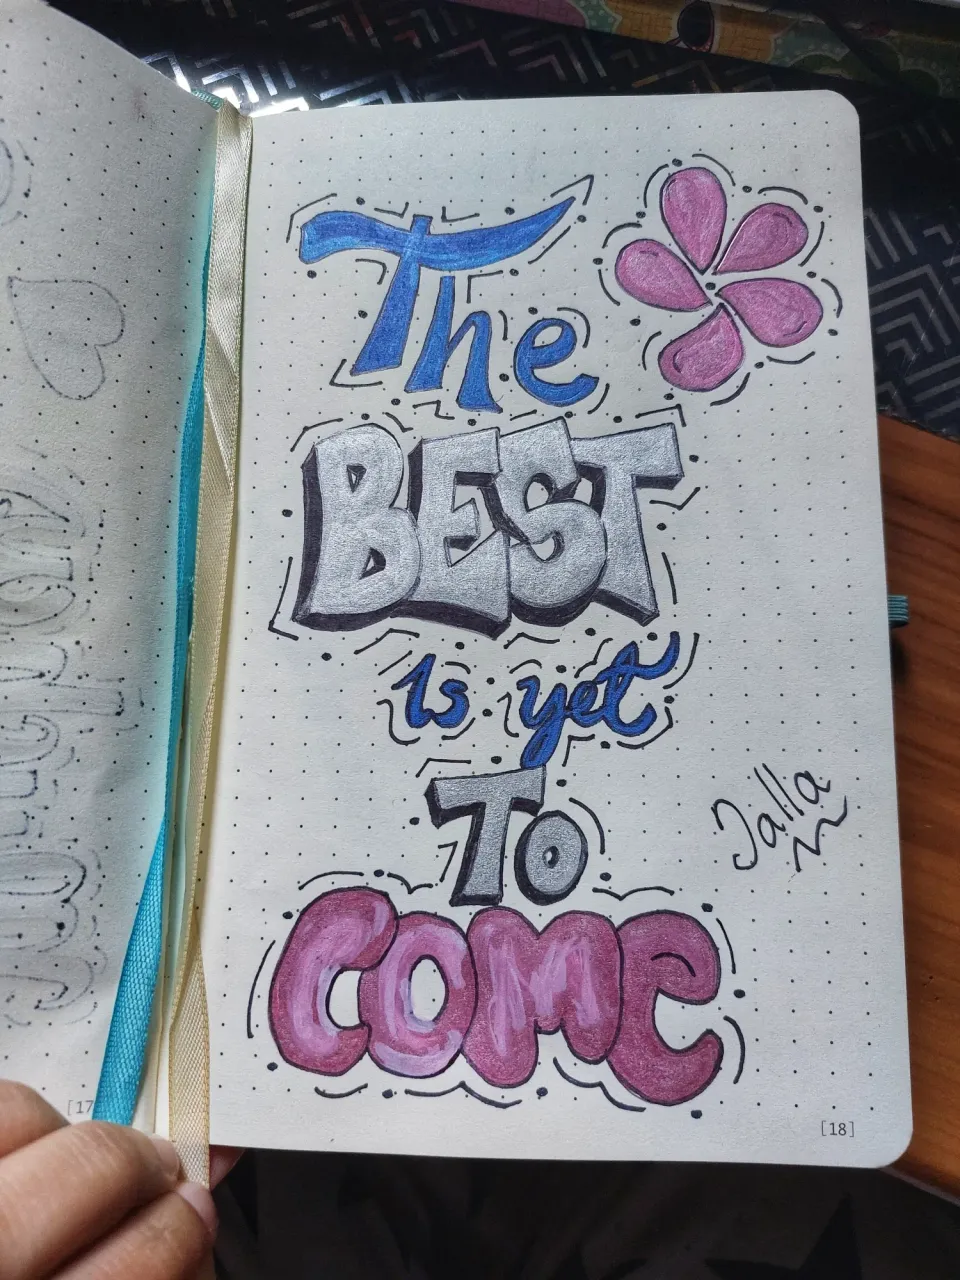 The
BEST
is yet
To
COMe
Jalla
[17
[18]